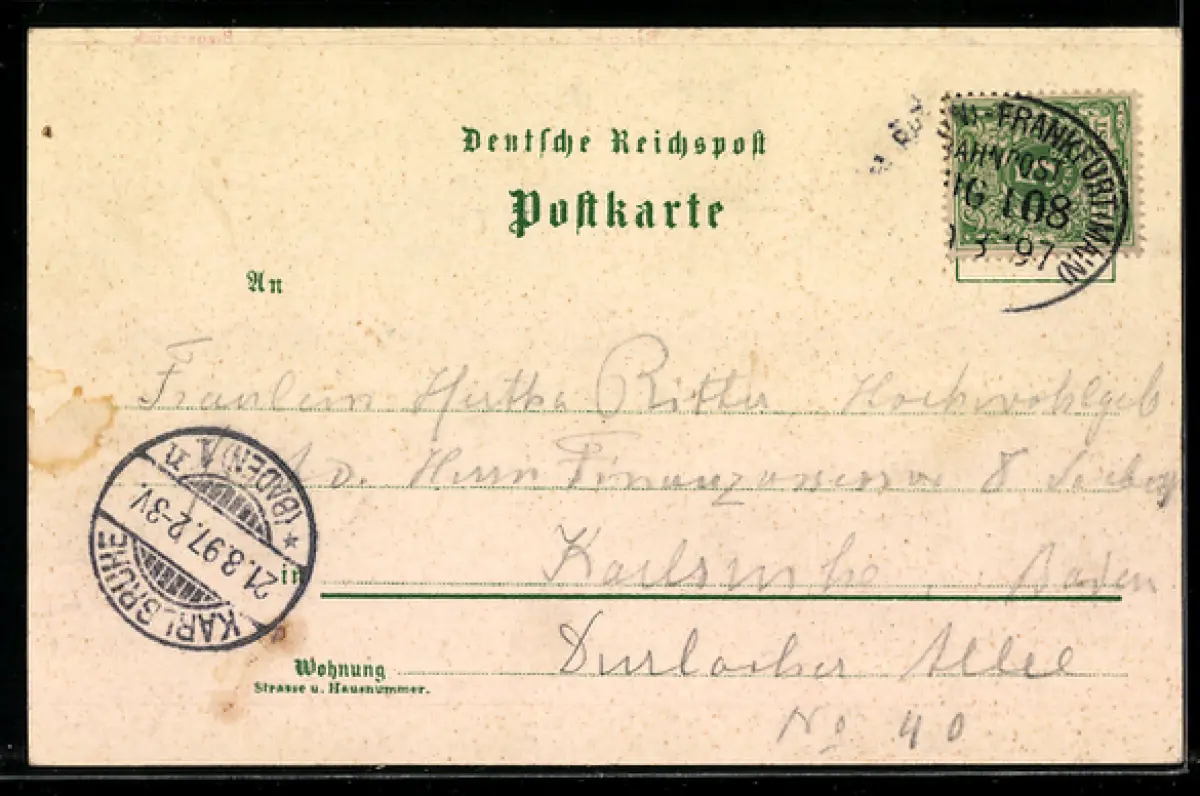 Deutsche Reichspost
Postkarte
-FRANKFURT (MAIN)
BAHNPOST
108
3 97
An
Fräulein Hertha Ritter, Hochwohlgeb
Herrn Finanzassessor
in Karlsruhe, Baden
Wohnung Durlacher Allee
Strasse u. Hausnummer.
No 40
KARLSRUHE
21.3.97.2-3V.
* (BADEN)